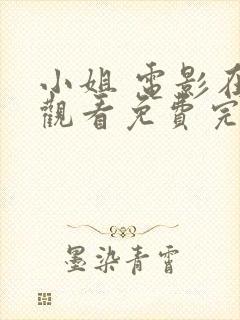 小姐 電影在
觀看免費完
墨染青霄